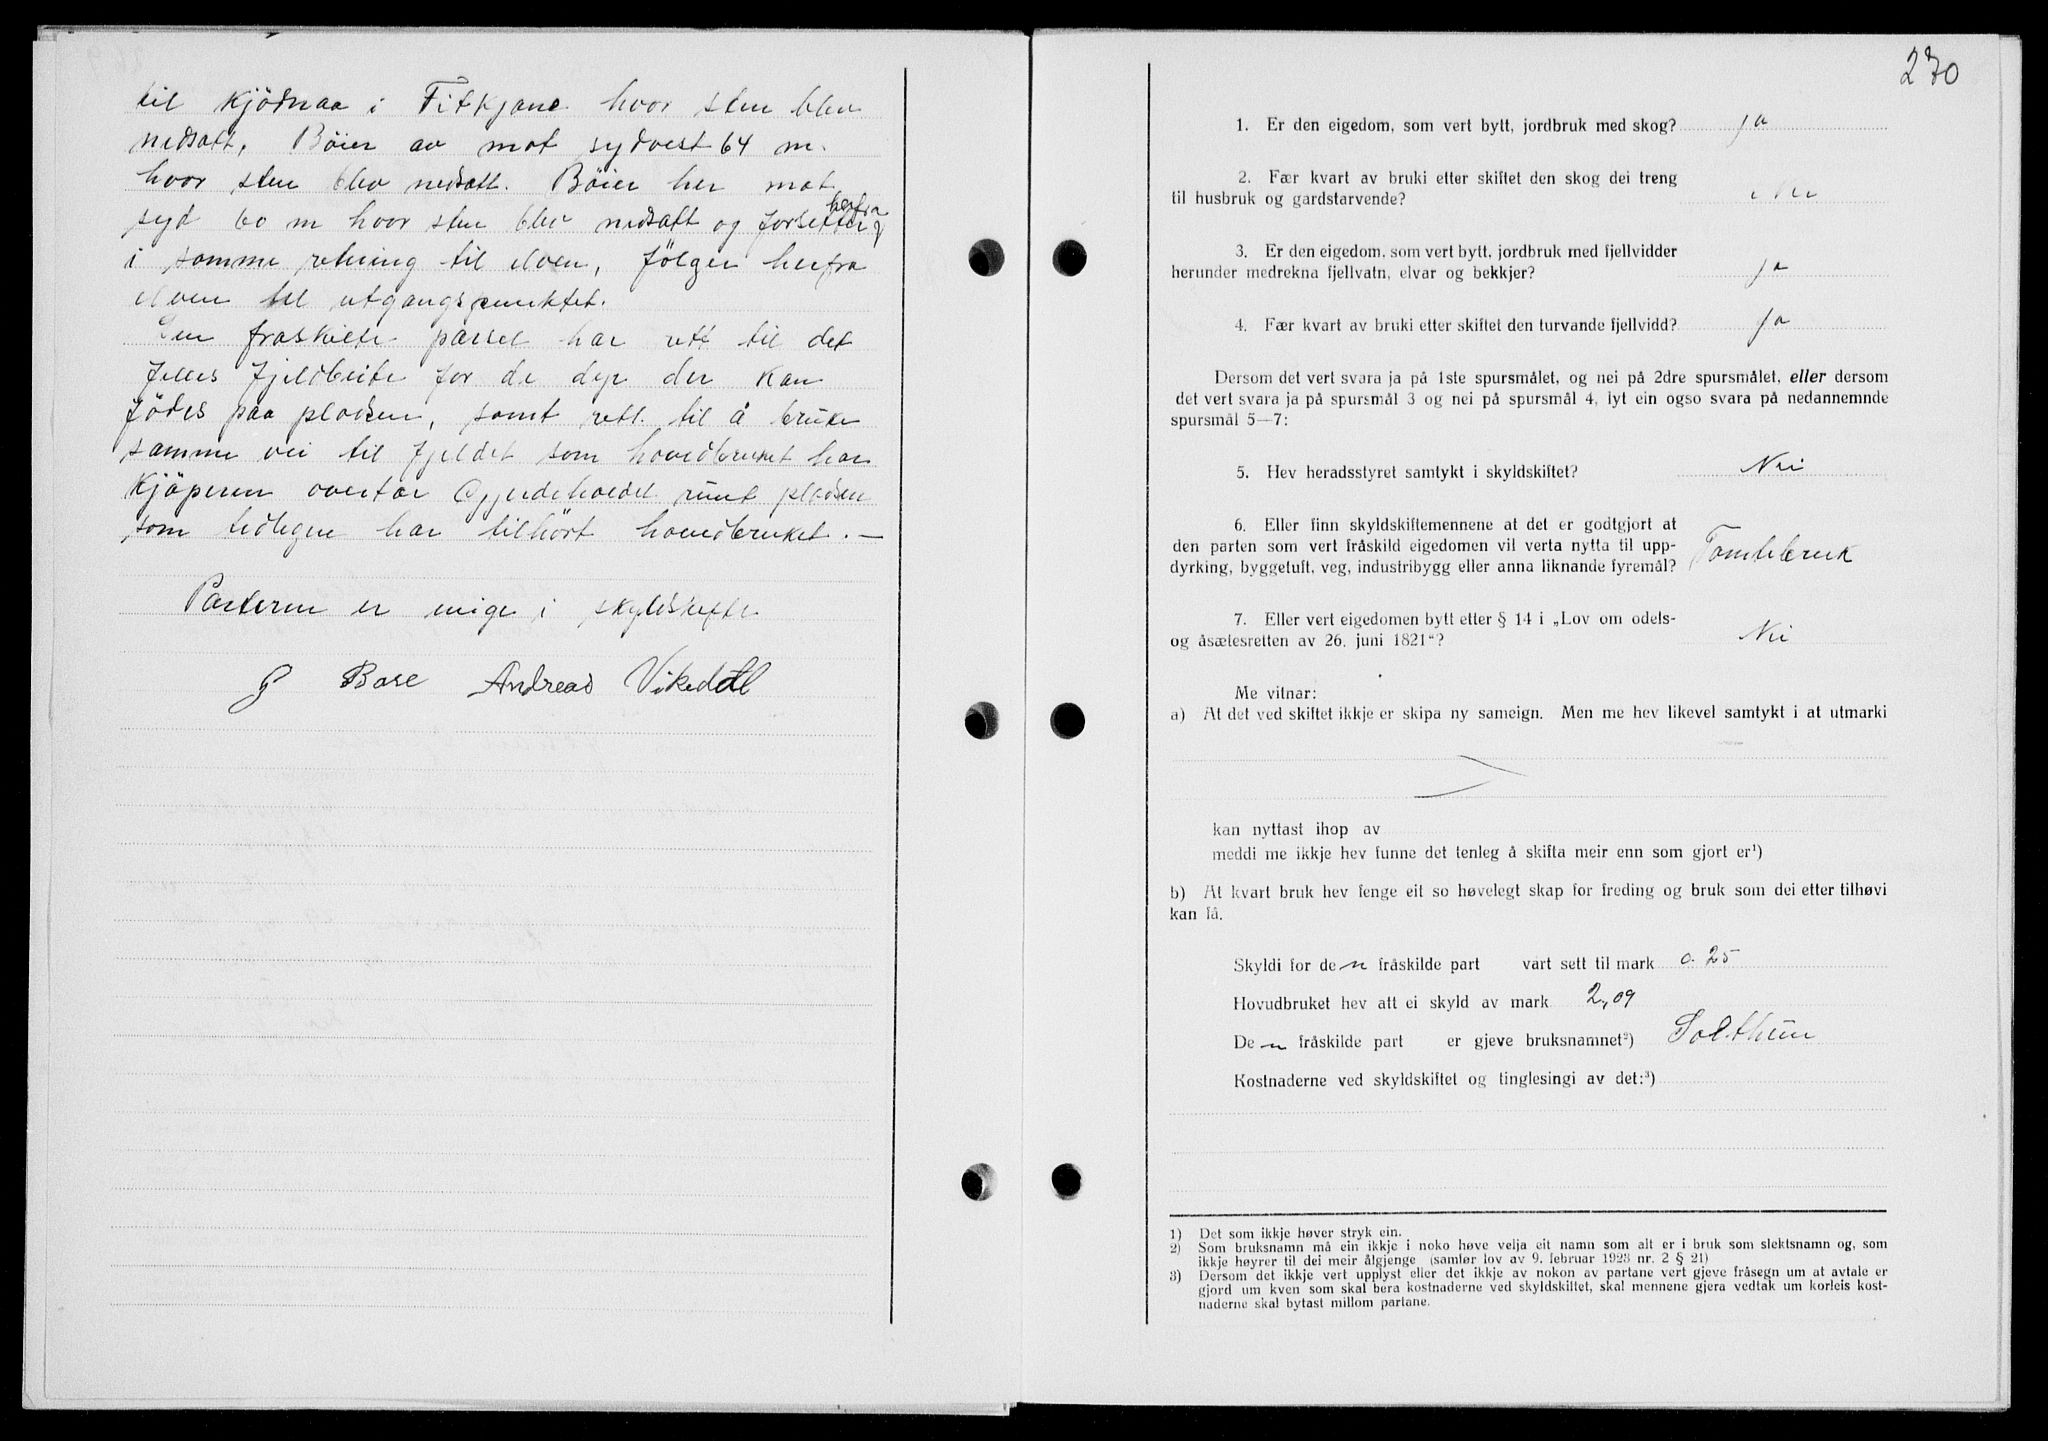 til Kjödnaa i Fitkjane hvor sten blev
nedsatt. Böier av mot sydvest 64 m.
hvor sten blev nedsatt. Böier her mot
syd 60 m hvor sten blev nedsatt og forsetter herfra
i samme retning til elven, fölger herfra
elven til utgangspunktet.
Den fraskilte parsel har rett til det
felles fjeldbeite for de dyr der kan
födes paa pladsen, samt rett til å bruke
samme vei til fjeldet som hovedbruket har
Kjöperen overtar Gjerdeholdet rundt pladsen
som tidligere har tilhört hovedbruket. —
Parterne er enige i skyldskifte
G Bore Andreas Vikedal
270
1. Er den eigedom, som vert bytt, jordbruk med skog? Ja
2. Fær kvart av bruki etter skiftet den skog dei treng
til husbruk og gardstarvende? Nei
3. Er den eigedom, som vert bytt, jordbruk med fjellvidder
herunder medrekna fjellvatn, elvar og bekkjer? Ja
4. Fær kvart av bruki etter skiftet den turvande fjellvidd? Ja
Dersom det vert svara ja på 1ste spursmålet, og nei på 2dre spursmålet, eller dersom
det vert svara ja på spursmål 3 og nei på spursmål 4, lyt ein ogso svara på nedannemnde
spursmål 5—7:
5. Hev heradsstyret samtykt i skyldskiftet? Nei
6. Eller finn skyldskiftemennene at det er godtgjort at
den parten som vert fråskild eigedomen vil verta nytta til upp-
dyrking, byggetuft, veg, industribygg eller anna liknande fyremål? Tomtebruk
7. Eller vert eigedomen bytt etter § 14 i „Lov om odels-
og åsætesretten av 26. juni 1821“? Nei
Me vitnar:
a) At det ved skiftet ikkje er skipa ny sameign. Men me hev likevel samtykt i at utmarki
kan nyttast ihop av
meddi me ikkje hev funne det tenleg å skifta meir enn som gjort er¹)
b) At kvart bruk hev fenge eit so høvelegt skap for freding og bruk som dei etter tilhøvi
kan få.
Skyldi for den fråskilde part vart sett til mark 0.25
Hovudbruket hev att ei skyld av mark 2,09
Den fråskilde part er gjeve bruksnamnet²) Solthun
Kostnaderne ved skyldskiftet og tinglesingi av det:³)
1) Det som ikkje høver stryk ein.
2) Som bruksnamn må ein ikkje i noko høve velja eit namn som alt er i bruk som slektsnamn og, som
ikkje høyrer til dei meir ålgjenge (samfør lov av 9. februar 1923 nr. 2 § 21)
3) Dersom det ikkje vert upplyst eller det ikkje av nokon av partane vert gjeve fråsegn um at avtale er
gjord um kven som skal bera kostnaderne ved skyldskiftet, skal mennene gjera vedtak um korleis kost-
naderne skal bytast millom partane.